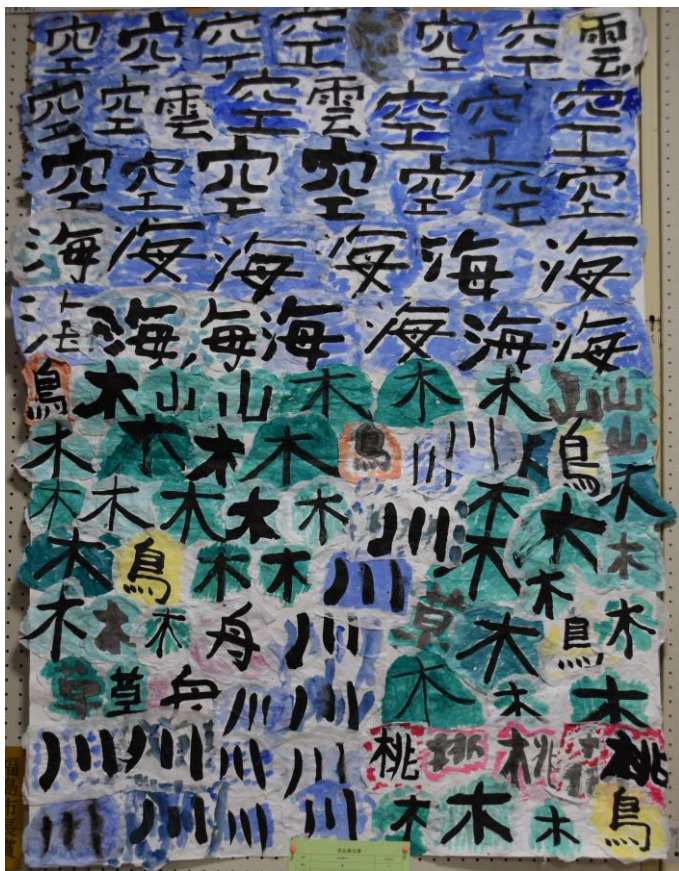 空空空空空空雲
空空雲空雲空空空
空空空空空空空
海海海海海海
海海海海海海
鳥木山山木木木山山
山
木木木木鳥川川鳥
木木木木木川木木木
木鳥木木川木木木
木木木舟川草木鳥木
草草舟川川木木木
川川川川桃桃桃桃
川川川川木木木鳥
福島市長賞